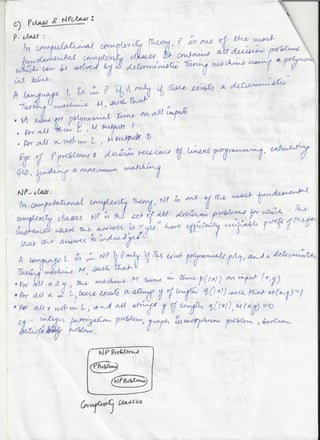 c) P class & NP class :
P- class :
In computational complexity theory, P is one of the most
fundamental complexity classes. It contains all decision problems
which can be solved by a deterministic Turing machine using a polynom
ial time.
A language L is in P if & only if there exists a deterministic
Turing machine M, such that
• M runs for polynomial time on all inputs
• For all x in L, M outputs 1
• For all x not in L, M outputs 0
Egs of P problems : decision versions of linear programming, calculating
GCD, finding a maximum matching.
NP- class :
In computational complexity theory, NP is one of the most fundamental
complexity classes NP is the set of all decision problems for which the
instances where the answer is "yes" have efficiently verifiable proofs of the fact
that the answer is indeed
A language L is in NP If & only if there exist polynomials p & q, and a deterministic
Turing machine M, such that
• For all x & y, the machine M runs in time p(|x|) on input (x,y)
• For all x in L, there exists a string y of length q(|x|) such that M(x,y)=1
• For all x not in L, and all strings y of length q(|x|), M(x,y)=0
eg:- integer factorization problem, graph isomorphism problem, boolean
problem
NP Problems
P Problems
NP Problems
Complexity classes